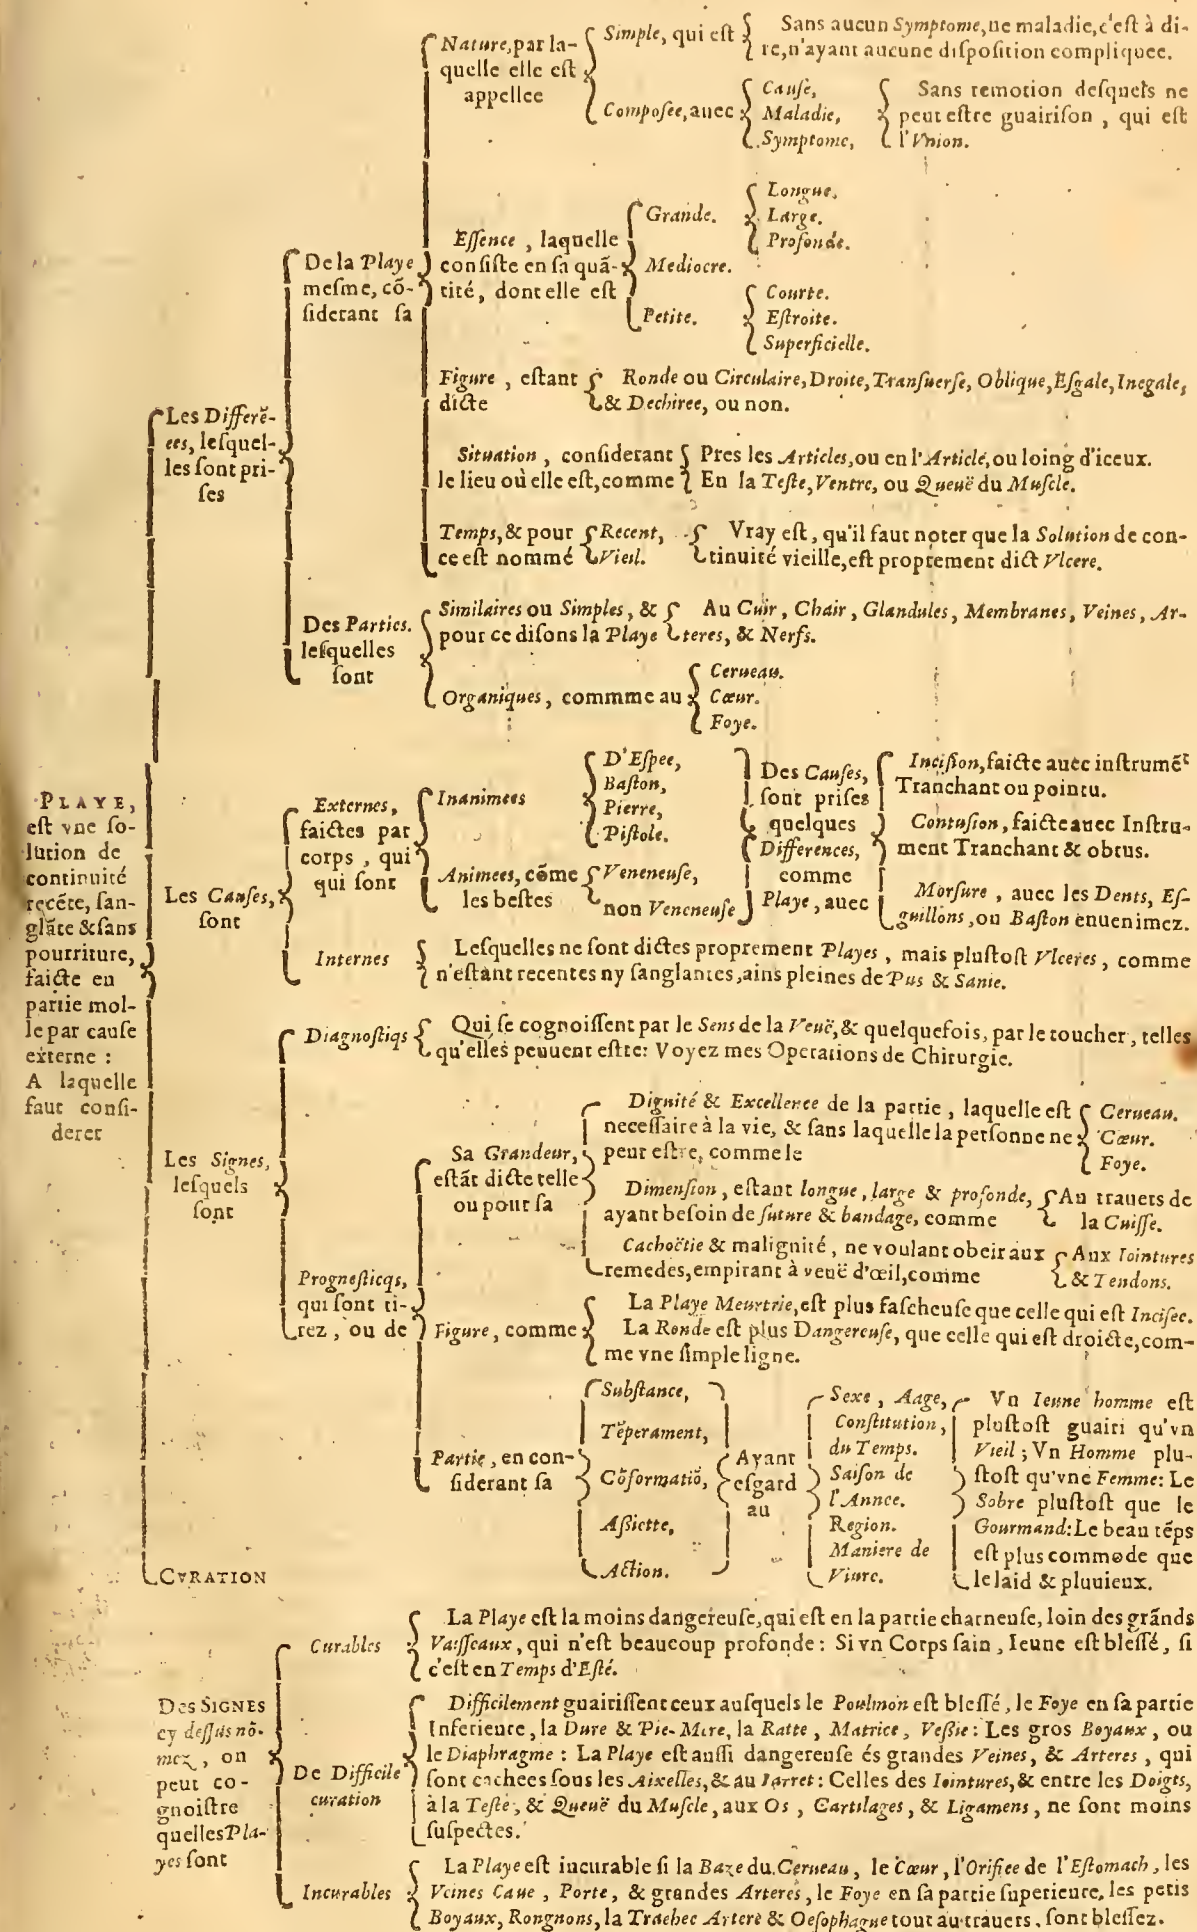 PLAYE,
est vne so-
lution de
continuité
recẽte, san-
glãte & sans
pourriture,
faicte en
partie mol-
le par cause
externe :
A laquelle
faut consi-
derer
Les Differẽ-
ces, lesquel-
les sont pri-
ses
De la Playe
mesme, cõ-
siderant sa
Nature, par la-
quelle elle est
appellee
Simple, qui est
Sans aucun Symptome, ne maladie, c'est à di-
re, n'ayant aucune disposition compliquee.
Composee, auec
Cause,
Maladie,
Symptome,
Sans remotion desquels ne
peut estre guairison , qui est
l'Vnion.
Essence , laquelle
consiste en sa quã-
tité, dont elle est
Grande.
Longue.
Large.
Profonde.
Mediocre.
Petite.
Courte.
Estroite.
Superficielle.
Figure , estant
dicte
Ronde ou Circulaire, Droite, Transuerse, Oblique, Esgale, Inegale,
& Dechiree, ou non.
Situation , considerant
le lieu où elle est, comme
Pres les Articles, ou en l'Article, ou loing d'iceux.
En la Teste, Ventre, ou Queuë du Muscle.
Temps, & pour
ce est nommé
Recent,
Vieil.
Vray est, qu'il faut noter que la Solution de con-
tinuité vieille, est proprement dict Vlcere.
Des Parties.
lesquelles
sont
Similaires ou Simples, &
pour ce disons la Playe
Au Cuir, Chair, Glandules, Membranes, Veines, Ar-
teres, & Nerfs.
Organiques, commme au
Cerueau.
Cœur.
Foye.
Les Causes,
sont
Externes,
faictes par
corps , qui
qui sont
Inanimees
D'Espee,
Baston,
Pierre,
Pistole.
Animees, cõme
les bestes
Veneneuse,
non Veneneuse
Des Causes,
sont prises
quelques
Differences,
comme
Playe, auec
Incision, faicte auec instrumẽt
Tranchant ou pointu.
Contusion, faicte auec Instru-
ment Tranchant & obtus.
Morsure , auec les Dents, Es-
guillons, ou Baston enuenimez.
Internes
Lesquelles ne sont dictes proprement Playes , mais plustost Vlceres , comme
n'estant recentes ny sanglantes, ains pleines de Pus & Sanie.
Les Signes,
lesquels
sont
Diagnostiqs
Qui se cognoissent par le Sens de la Veuë, & quelquefois, par le toucher, telles
qu'elles peuuent estre: Voyez mes Operations de Chirurgie.
Prognesticqs,
qui sont ti-
rez , ou de
Sa Grandeur,
estãt dicte telle
ou pour sa
Dignité & Excellence de la partie , laquelle est
necessaire à la vie, & sans laquelle la personne ne
peut estre, comme le
Cerueau.
Cœur.
Foye.
Dimension, estant longue, large & profonde,
ayant besoin de suture & bandage, comme
Au trauers de
la Cuisse.
Cachoëtie & malignité, ne voulant obeir aux
remedes, empirant à veuë d'œil, comme
Aux Iointures
& Tendons.
Figure, comme
La Playe Meurtrie, est plus fascheuse que celle qui est Incisee.
La Ronde est plus Dangereuse, que celle qui est droicte, com-
me vne simple ligne.
Partie, en con-
siderant sa
Substance,
Tẽperament,
Cõformatiõ,
Assiette,
Action.
Ayant
esgard
au
Sexe , Aage,
Constitution,
du Temps.
Saison de
l'Annee.
Region.
Maniere de
Viure.
Vn Ieune homme est
plustost guairi qu'vn
Vieil ; Vn Homme plu-
stost qu'vne Femme: Le
Sobre plustost que le
Gourmand: Le beau tẽps
est plus commode que
le laid & pluuieux.
CVRATION
Des SIGNES
cy dessus nõ-
mez, on
peut co-
gnoistre
quelles Pla-
yes sont
Curables
La Playe est la moins dangereuse, qui est en la partie charneuse, loin des grãnds
Vaisseaux, qui n'est beaucoup profonde: Si vn Corps sain, Ieune est blessé, si
c'est en Temps d'Esté.
De Difficile
curation
Difficilement guairissent ceux ausquels le Poulmon est blessé, le Foye en sa partie
Inferieure, la Dure & Pie-Mere, la Ratte, Matrice, Vessie: Les gros Boyaux, ou
le Diaphragme: La Playe est aussi dangereuse és grandes Veines, & Arteres, qui
sont cachees sous les Aixelles, & au Iarret: Celles des Iointures, & entre les Doigts,
à la Teste, & Queuë du Muscle, aux Os, Cartilages, & Ligamens, ne sont moins
suspectes.
Incurables
La Playe est incurable si la Baze du Cerueau, le Cœur, l'Orifice de l'Estomach, les
Veines Caue, Porte, & grandes Arteres, le Foye en sa partie superieure, les petis
Boyaux, Rongnons, la Trachee Artere & Oesophague tout au trauers, sont blessez.